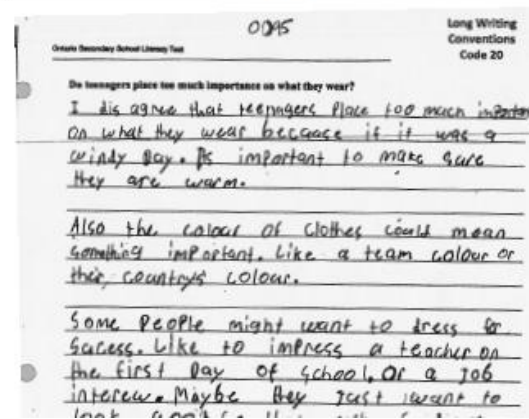 0095
Long Writing
Conventions
Code 20
Ontario Secondary School Literacy Test
Do teenagers place too much importance on what they wear?
I dis agree that teenagers Place too much important
on what they wear because if it was a
windy Day. Is important to make sure
they are warm.
Also the colour of clothes could mean
something important. Like a team colour or
their countrys colour.
Some People might want to dress for
Sucess. Like to impress a teacher on
the first Day of School. Or a Job
interew. Maybe they just want to
look